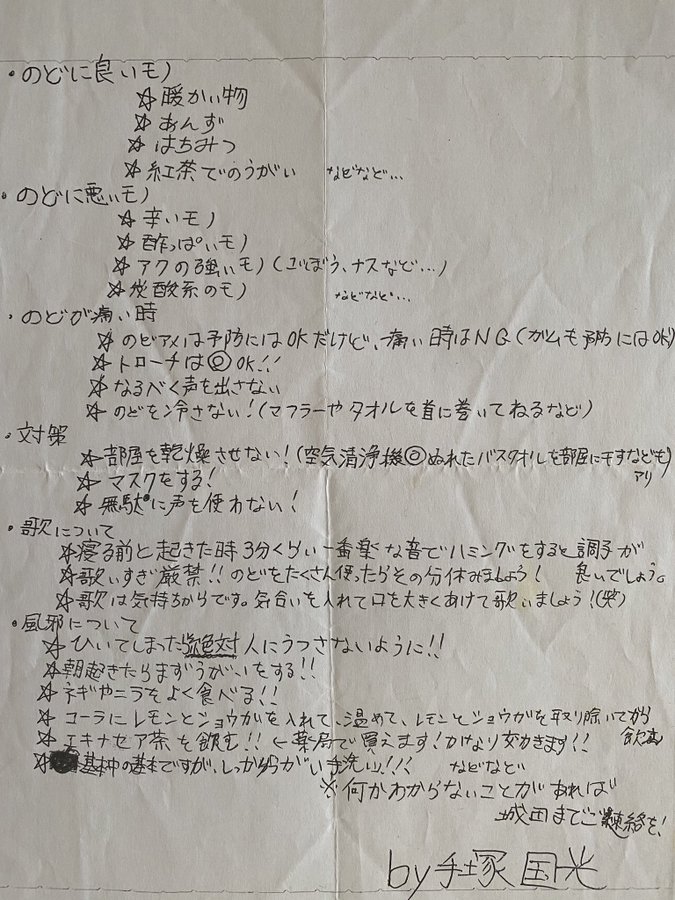 ・のどに良いモノ
☆暖かい物
☆あんず
☆はちみつ
☆紅茶でのうがい などなど…
・のどに悪いモノ
☆辛いモノ
☆酢っぱいモノ
☆アクの強いモノ(ごぼう、ナスなど…)
☆炭酸系のモノ などなど…
・のどが痛い時
☆のどアメは予防にはOKだけど、痛い時はNG(ガムも予防にはOK)
☆トローチは◎OK!!
☆なるべく声を出さない
☆のどを冷さない!(マフラーやタオルを首に巻いてねるなど)
・対策
☆部屋を乾燥させない!(空気清浄機◎ぬれたバスタオルを部屋に干すなども)
アリ
☆マスクをする!
☆無駄に声を使わない!
・歌について
☆寝る前と起きた時3分くらい一番楽な音でハミングをすると調子が
良いでしょう。
☆歌いすぎ厳禁!!のどをたくさん使ったらその分休みましょう!
☆歌は気持ちからです。気合いを入れて口を大きくあけて歌いましょう!(笑)
・風邪について
☆ひいてしまったら絶対人にうつさないように!!
☆朝起きたらまずうがいをする!!
☆ネギやニラをよく食べる!!
☆コーラにレモンとショウガを入れて、温めて、レモンとショウガを取り除いてから
飲む
☆エキナセア茶を飲む!!←薬局で買えます!かなり効きます!!
☆基本中の基本ですが、しっかりうがい手洗い!!! などなど
※何かわからないことがあれば
城田までご連絡を!
by 手塚国光